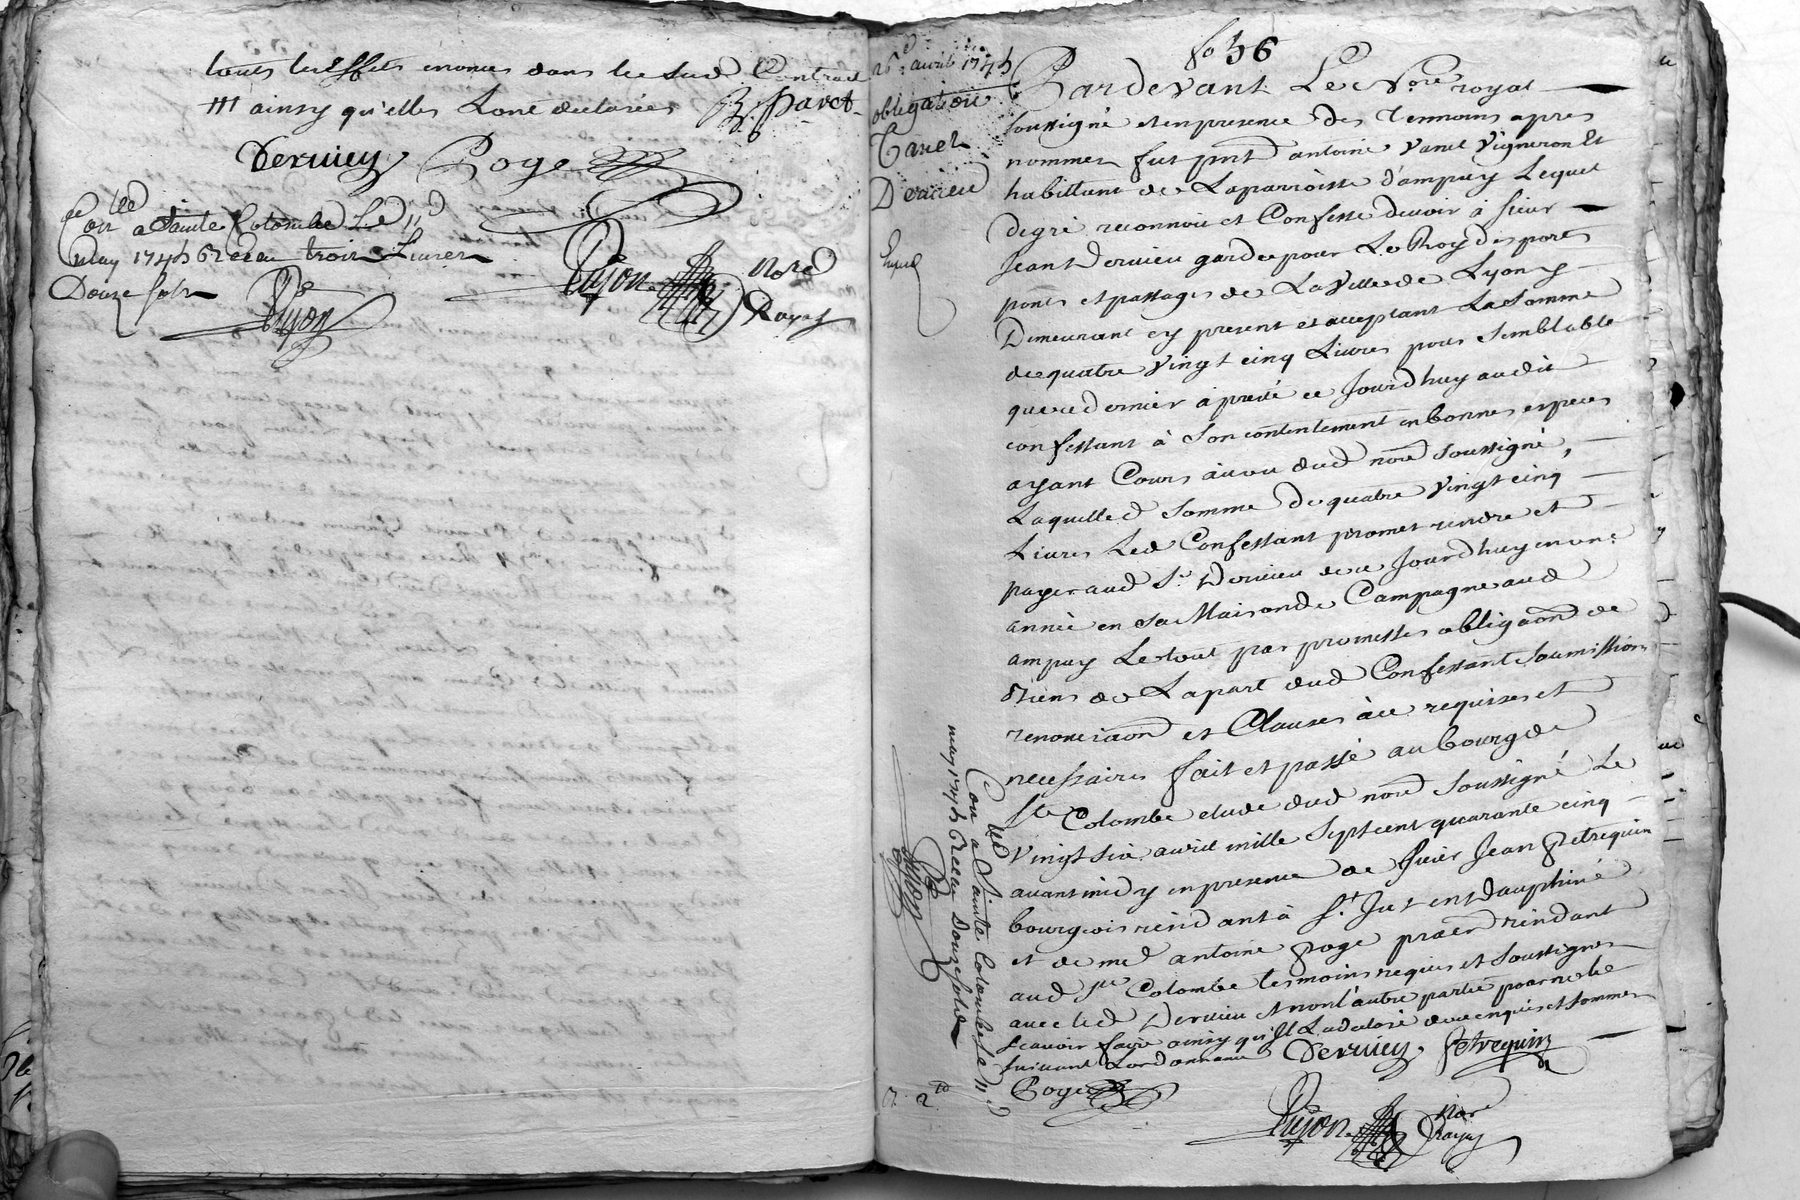 touts les Effets enoncés dans le sud Contrat
ainsy qu'elles Lont declarées
Dervieu Poge
Con.lé a Sainte Colombe Le 11d
may 1745 Receu trois Livres
Douze sols
Pujon
Pujon Nore
Royal
fo 56
26e avril 1745
obligation
Vanel
Dervieu
Pardevant Le Nore royal
soussigné et en presence des Temoins apres
nommes fut pnt antoine Vanel Vigneron Et
habittant de La parroisse d'ampuy Lequel
de gré reconnoit et Confesse devoir à sieur
Jean Dervieu garde pour Le Roy des ports
ponts et passages de La Ville de Lyon y
Demeurant cy present et acceptant La somme
de quatre vingt cinq Livres pour semblable
que ce dernier a preté ce Jourdhuy audit
confessant à son contentement en bonnes especes
ayant Cours au vu dud nore soussigné,
Laquelled somme de quatre vingt cinq
Livres Led Confessant promet rendre et
payer aud Sr Dervieu de ce Jourdhuy en une
année en sa Maison de Campagne aud
ampuy Le tout par promesses obligaon de
biens de La part dud Confessant soumissions
renonciaon et Clauses à ce requises et
necessaires fait et passé au bourg de
Ste Colombe etude dud nore soussigné Le
vingt six avril mille sept cent quarante cinq
avant midy en presence de sieur Jean Petrequin
bourgeois residant à St Just en dauphiné
et de me antoine Poge praen residant
aud Ste Colombe temoins requis et soussignes
avec led Dervieu et non l'autre partie pour ne le
scavoir faire ainsy qu'il L'a declaré de ce enquis et sommés
suivant Lordonnance Dervieu Petrequin
Poge
Pujon Nore
Royal
Con.lé a Sainte Colombe Le 11d
may 1745 Receu Douze sols
Pujon